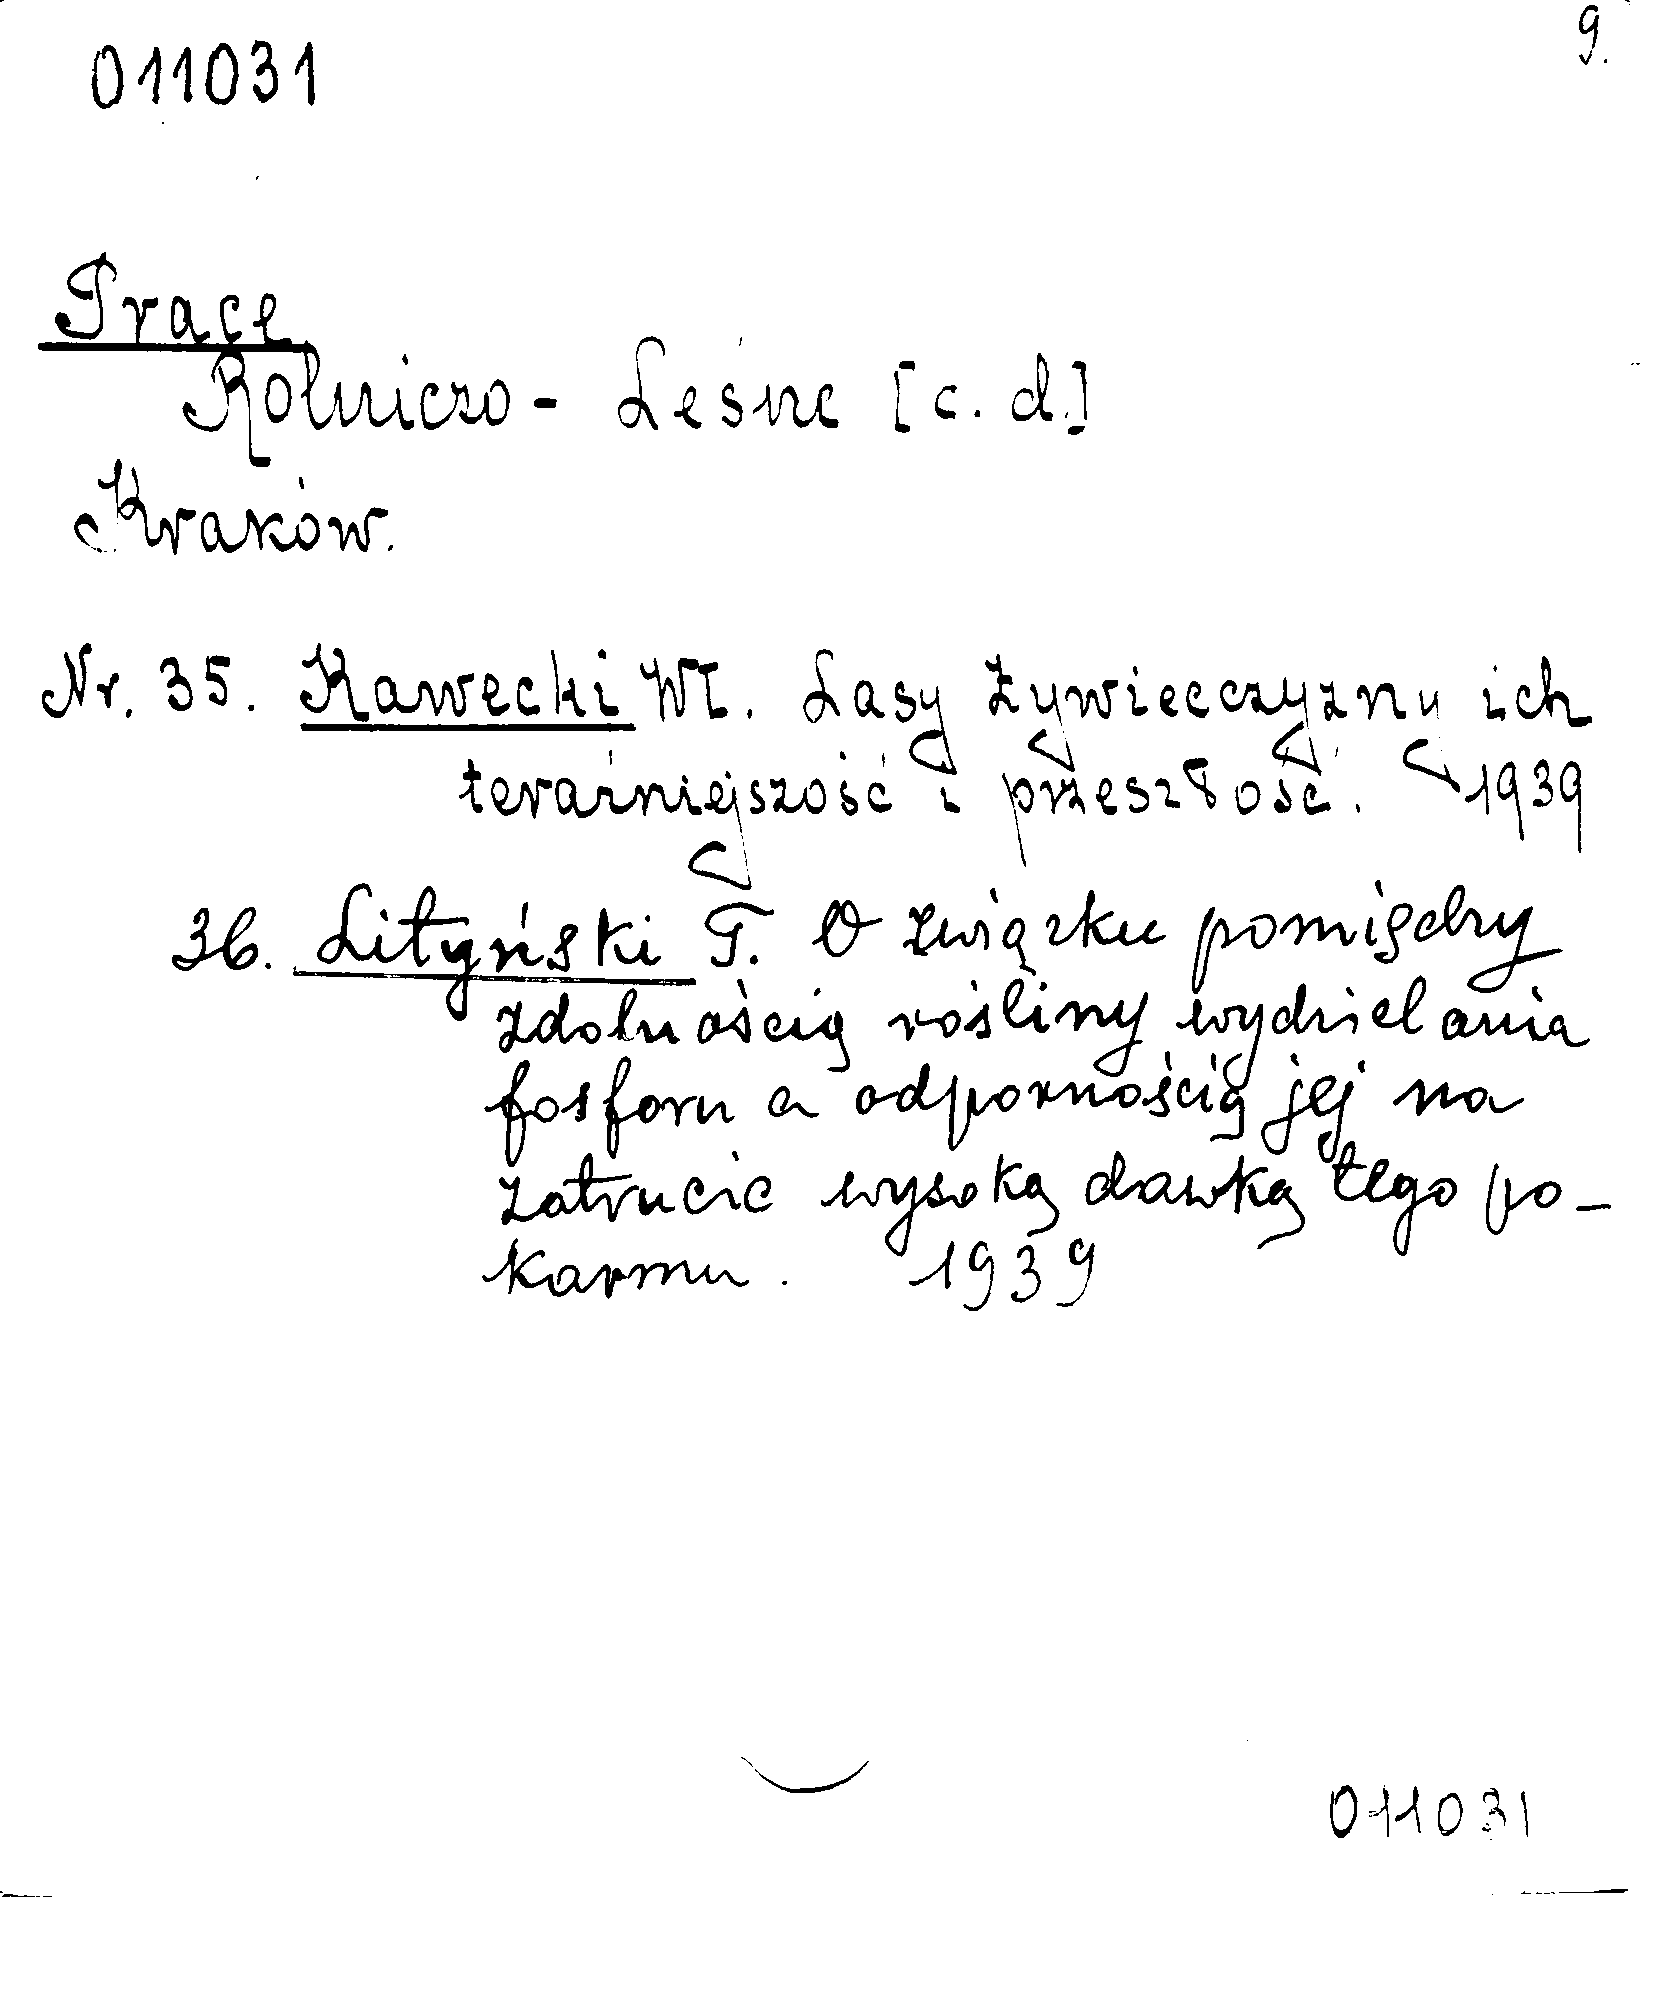 9.
011031
Prace
Rolniczo - Leśne [c. d.]
Kraków.
Nr. 35. Kawecki Wł. Lasy Żywiecczyzny ich
teraźniejszość i przeszłość. 1939
36. Lityński T. O związku pomiędzy
zdolnością rośliny wydzielania
fosforu a odpornością jej na
zatrucie wysoką dawką tego po-
karmu. 1939
011031